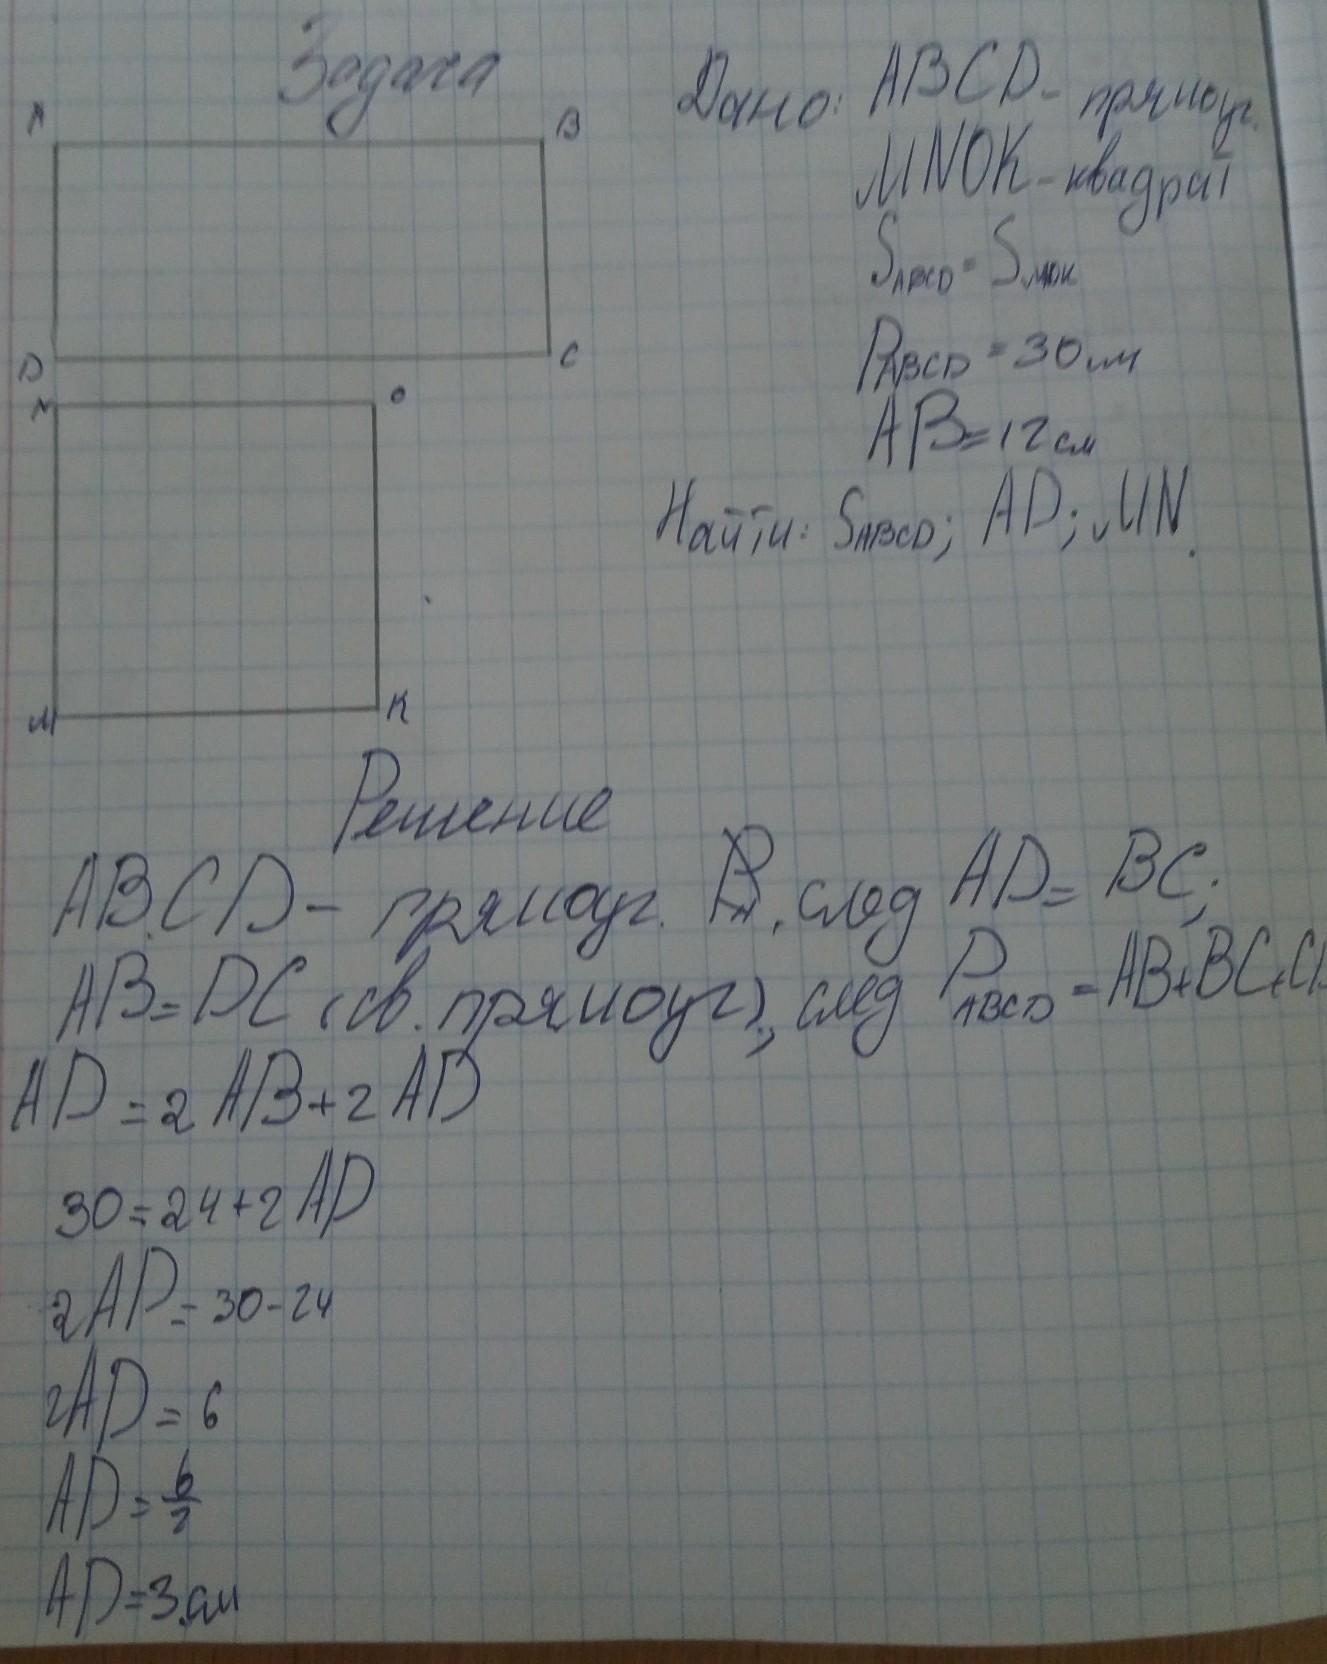 Задача
A B
D C
N O
M K
Дано: ABCD - прямоуг.
MNOK - квадрат
S ABCD = S MNOK
P ABCD = 30 см
AB = 12 см
Найти: S ABCD; AD; MN.
Решение
ABCD - прямоуг. , след AD = BC;
AB = DC (св. прямоуг), след P ABCD = AB + BC + CD
AD = 2AB + 2AD
30 = 24 + 2AD
2AD = 30 - 24
2AD = 6
AD = 6/2
AD = 3 см